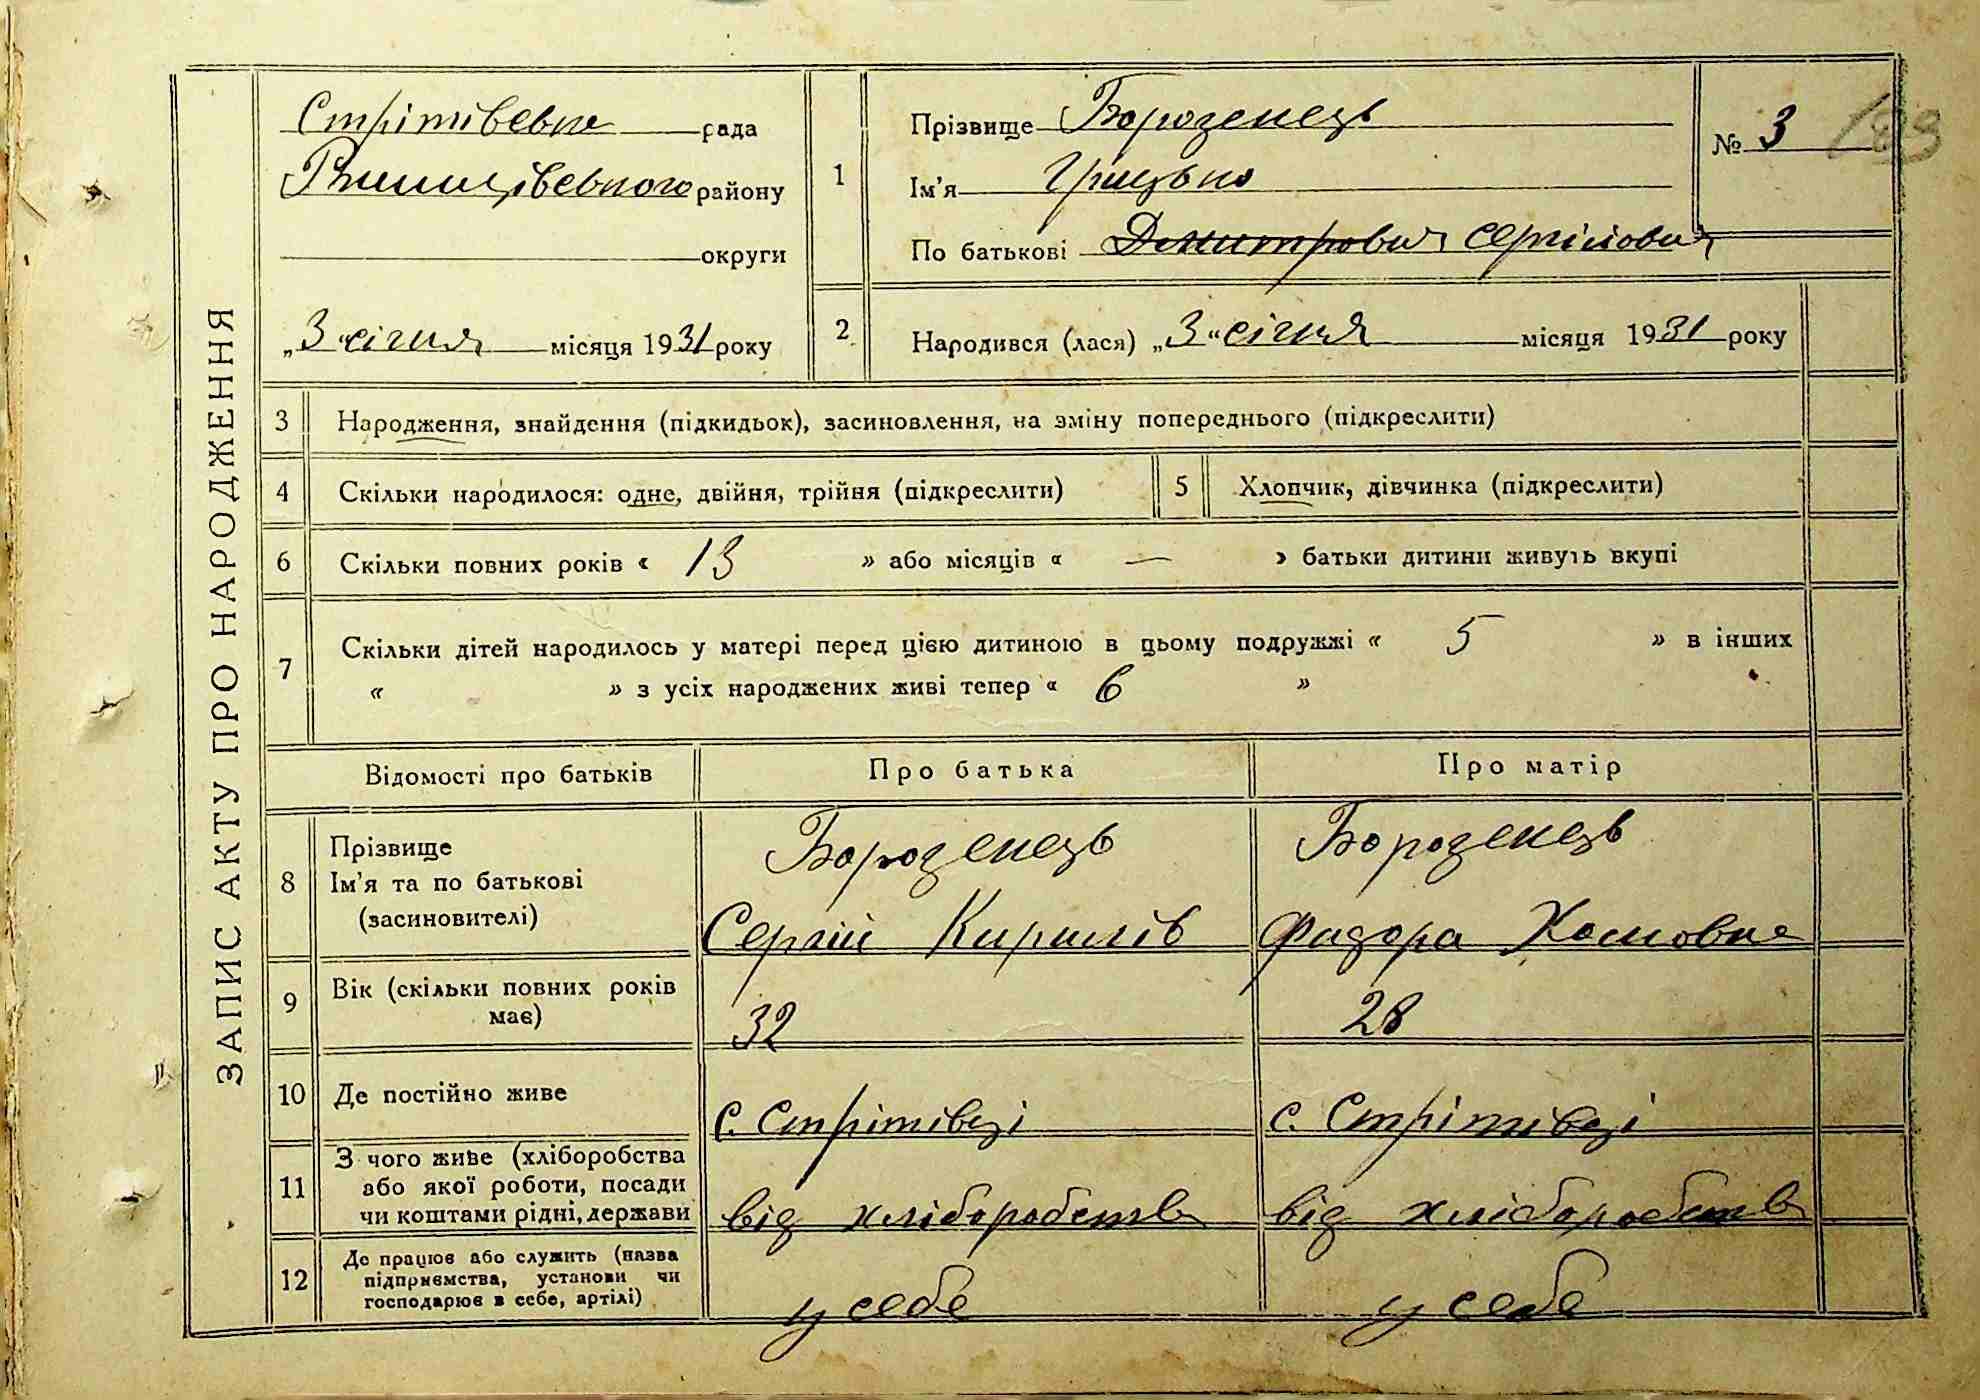 ЗАПИС АКТУ ПРО НАРОДЖЕННЯ
Стрітівська рада
Ржищівського району
округи
„3“ січня місяця 1931 року
1
Прізвище Бороденець
Ім'я Грицько
По батькові Дмитрович Сергійович
№ 3
2
Народився (лася) „3“ січня місяця 1931 року
3 Народження, знайдення (підкидьок), засиновлення, на зміну попереднього (підкреслити)
4 Скільки народилося: одне, двійня, трійня (підкреслити)
5 Хлопчик, дівчинка (підкреслити)
6 Скільки повних років « 13 » або місяців « — » батьки дитини живуть вкупі
7 Скільки дітей народилось у матері перед цією дитиною в цьому подружжі « 5 » в інших
« » з усіх народжених живі тепер « 6 »
Відомості про батьків Про батька Про матір
8
Прізвище
Ім'я та по батькові
(засиновителі)
Бороденець
Сергій Кирилів
Бороденець
Фидора Хомовна
9
Вік (скільки повних років
має)
32
28
10 Де постійно живе
с. Стрітівці
с. Стрітівці
11
З чого живе (хліборобства
або якої роботи, посади
чи коштами рідні, держави
від хліборобств
від хліборобств
12
Де працює або служить (назва
підприємства, установи чи
господарює в себе, артілі)
у себе
у себе